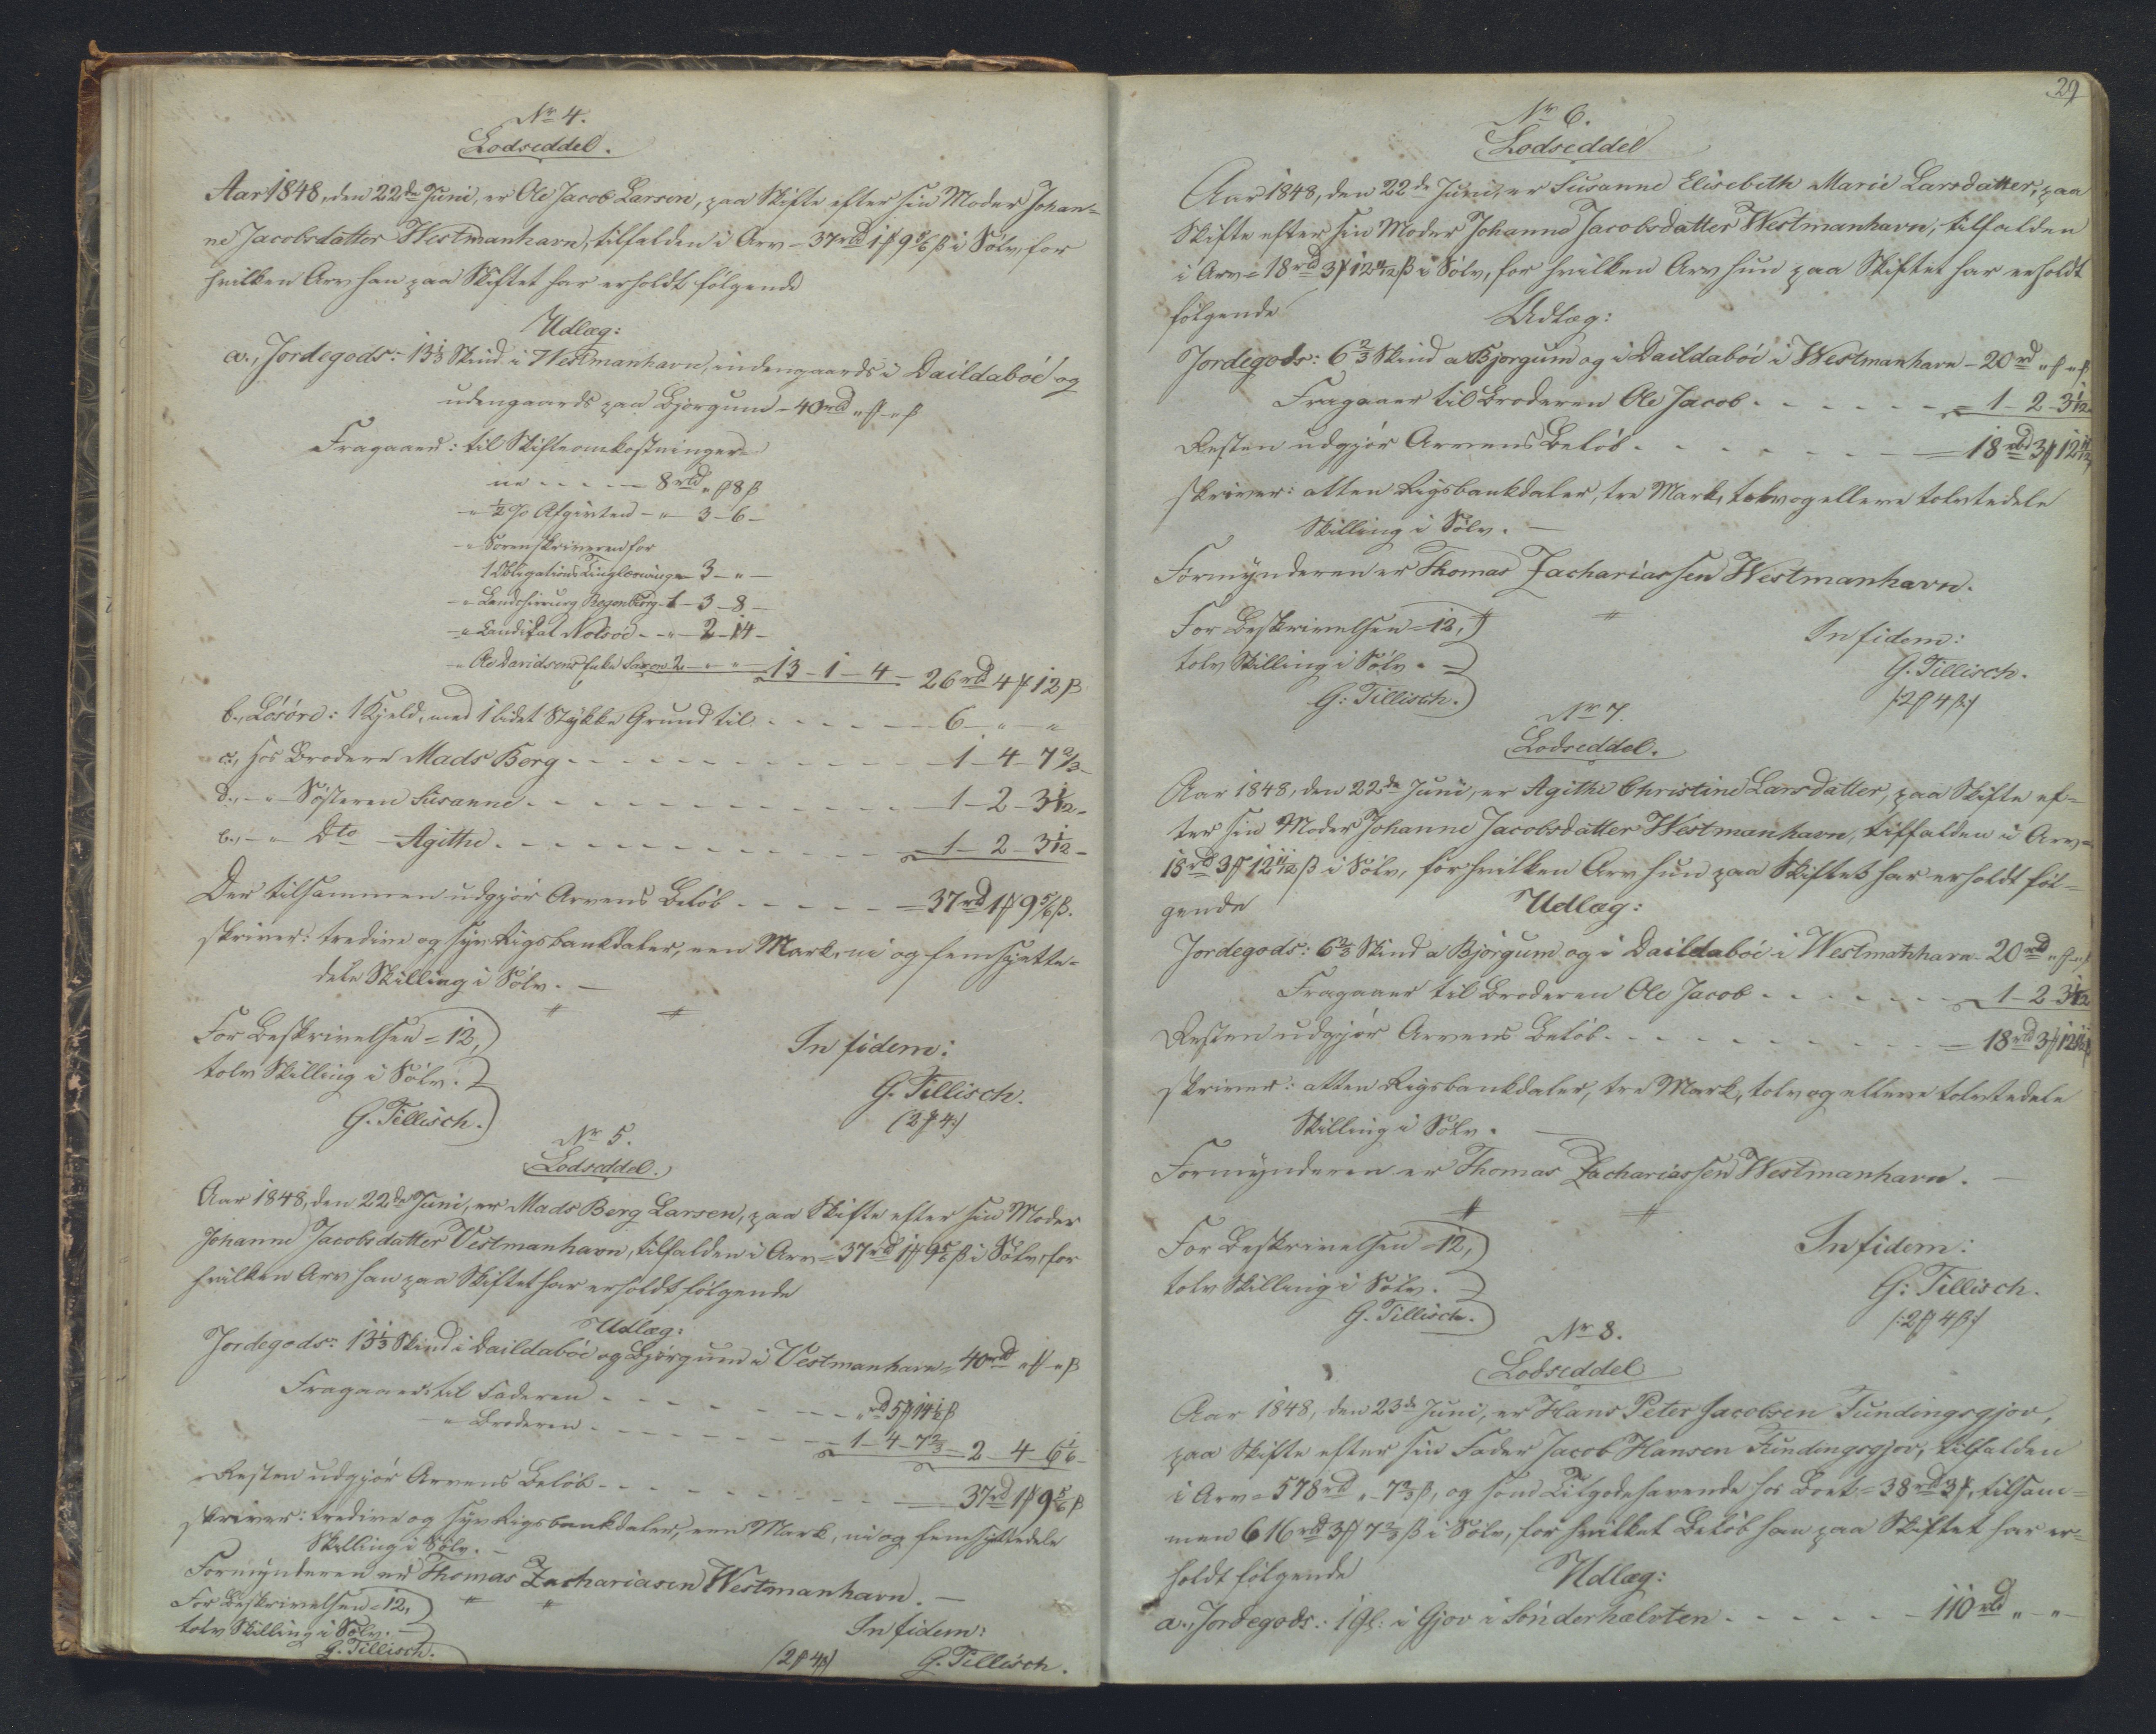 Nr 4.
Lodseddel.
Aar 1848, den 22de Juni, er Ole Jacob Larsen, paa Skifte efter sin Moder Johan=
ne Jacobsdatter Westmanhavn, tilfalden i Arv - 37rbd 1 ₰ 9 5/6 β i Sölv, for
hvilken Arv han paa Skiftet har erholdt fölgende
Udlæg:
a., Jordegods: 13 1/3 Skind i Westmanhavn, indengaards i Daildaböe og
udengaards paa Björgum - 40rbd " ₰ - " β
Fragaaer: til Skifteomkostninger=
ne - - - - 8rbd " ₰ 8 β
- " 1/2 % Afgivten - " - 3 - 6 -
- " Sorenskriveren for
1 Obligations Tinglæsning - " 3 - " -
- " Landchirurg Regenburg - 1 - 3 - 8 -
- " Candidat Nolsöe - - " - 2 - 14 -
- " Ole Davidsens Enke Saxen 2 - " - " - 13 - 1 - 4 - 26rbd 4 ₰ 12 β
b., Lösöre: 1 Kjeld, med 1 lidet Stykke Grund til - - - - - 6 - " - "
c., hos Brodere Mads Berg - - - - - - - - - 1 - 4 - 7 2/3 -
d., - " - Sösteren Susanne - - - - - - - - - 1 - 2 - 3 1/12 -
e., - " - Dto - Agithe - - - - - - - - - 1 - 2 - 3 1/12 -
Der tilsammen udgjör Arvens Belöb - - - - - = 37rbd 1 ₰ 9 5/6 β.
skriver: tredive og syv Rigsbankdaler, een Mark, ni og femsjette=
dele Skilling i Sölv. -
For Beskrivelsen = 12,
tolv Skilling i Sölv.
G. Tillisch.
In fidem:
G. Tillisch.
(2 ₰ 4)
Nr 5.
Lodseddel.
Aar 1848, den 22de Juni, er Mads Berg Larsen, paa Skifte efter sin Moder
Johanne Jacobsdatter Vestmanhavn, tilfalden i Arv = 37rbd 1 ₰ 9 5/6 β i Sölv, for
hvilken Arv han paa Skiftet har erholdt fölgende
Udlæg:
Jordegods: 13 1/3 Skind i Daildaböe og Björgum i Vestmanhavn = 40rbd " ₰ " β
Fragaaer: til Faderen - - - - - - - " rbd 5 ₰ 14 1/2 β
- " Broderen - - - - - - - 1 - 4 - 7 2/3 = 2 - 4 - 6 1/6 -
Resten udgjör Arvens Belöb - - - - - - - 37rbd 1 ₰ 9 5/6 β
skriver: tredive og syv Rigsbankdaler, een Mark, ni og femsjettedele
Skilling i Sölv. -
Formynderen er Thomas Zachariasen Westmanhavn. -
For Beskrivelsen = 12,
tolv Skilling i Sölv. -
G. Tillisch.
In fidem:
(2 ₰ 4 β) G. Tillisch.
29
Nr 6.
Lodseddel
Aar 1848, den 22de Juni, er Susanne Elisebeth Marie Larsdatter, paa
Skifte efter sin Moder Johanne Jacobsdatter Westmanhavn, tilfalden
i Arv = 18rbd 3 ₰ 12 11/12 β i Sölv, for hvilken Arv hun paa Skiftet har erholdt
fölgende
Udlæg:
Jordegods: 6 2/3 Skind a Björgum og i Daildaböe i Westmanhavn - 20rbd " ₰ " β
Fragaaer til Broderen Ole Jacob - - - - - - = 1 - 2 - 3 1/12
Resten udgjör Arvens Belöb - - - - - - - = 18rbd 3 ₰ 12 11/12
skriver: atten Rigsbankdaler, tre Mark, tolv og elleve tolvtedele
Skilling i Sölv. -
Formynderen er Thomas Zachariassen Westmanhavn.
For Beskrivelsen = 12,
tolv Skilling i Sölv. -
G. Tillisch.
In fidem:
G. Tillisch.
(: 2 ₰ 4 β :)
Nr 7.
Lodseddel.
Aar 1848, den 22de Juni, er Agithe Christine Larsdatter, paa Skifte ef=
ter sin Moder Johanne Jacobsdatter Westmanhavn, tilfalden i Arv =
18rbd 3 ₰ 12 11/12 β i Sölv, for hvilken Arv hun paa Skiftet har erholdt föl=
gende
Udlæg:
Jordegods: 6 2/3 Skind a Björgum og i Daildaböe i Westmanhavn - 20rbd " ₰ "
Fragaaer til Broderen Ole Jacob - - - - - - 1 - 2 - 3 1/12
Resten udgjör Arvens Belöb - - - - - - - = 18rbd 3 ₰ 12 11/12 β
skriver: atten Rigsbankdaler, tre Mark, tolv og elleve tolvtedele
Skilling i Sölv. -
Formynderen er Thomas Zachariassen Westmanhavn. -
For Beskrivelsen = 12,
tolv Skilling i Sölv.
G. Tillisch.
In fidem:
G. Tillisch.
(: 2 ₰ 4 β :)
Nr 8.
Lodseddel
Aar 1848, den 23de Juni, er Hans Peter Jacobsen Fundingsgjov,
paa Skifte efter sin Fader Jacob Hansen Fundingsgjov, tilfalden
i Arv = 578rbd " - 7 2/3 β, og som Tilgodehavende hos Boet = 38rbd 3 ₰, tilsam=
men 616rbd 3 ₰ 7 2/3 β i Sölv, for hvilket Belöb han paa Skiftet har er=
holdt fölgende
Udlæg:
a., Jordegods: 1 Gl: i Gjov i Sönderhælvten - - - - - 110rbd " - " -